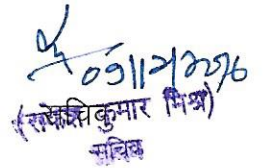 09/12/2016
(रविकुमार मिश्र)
सचिव